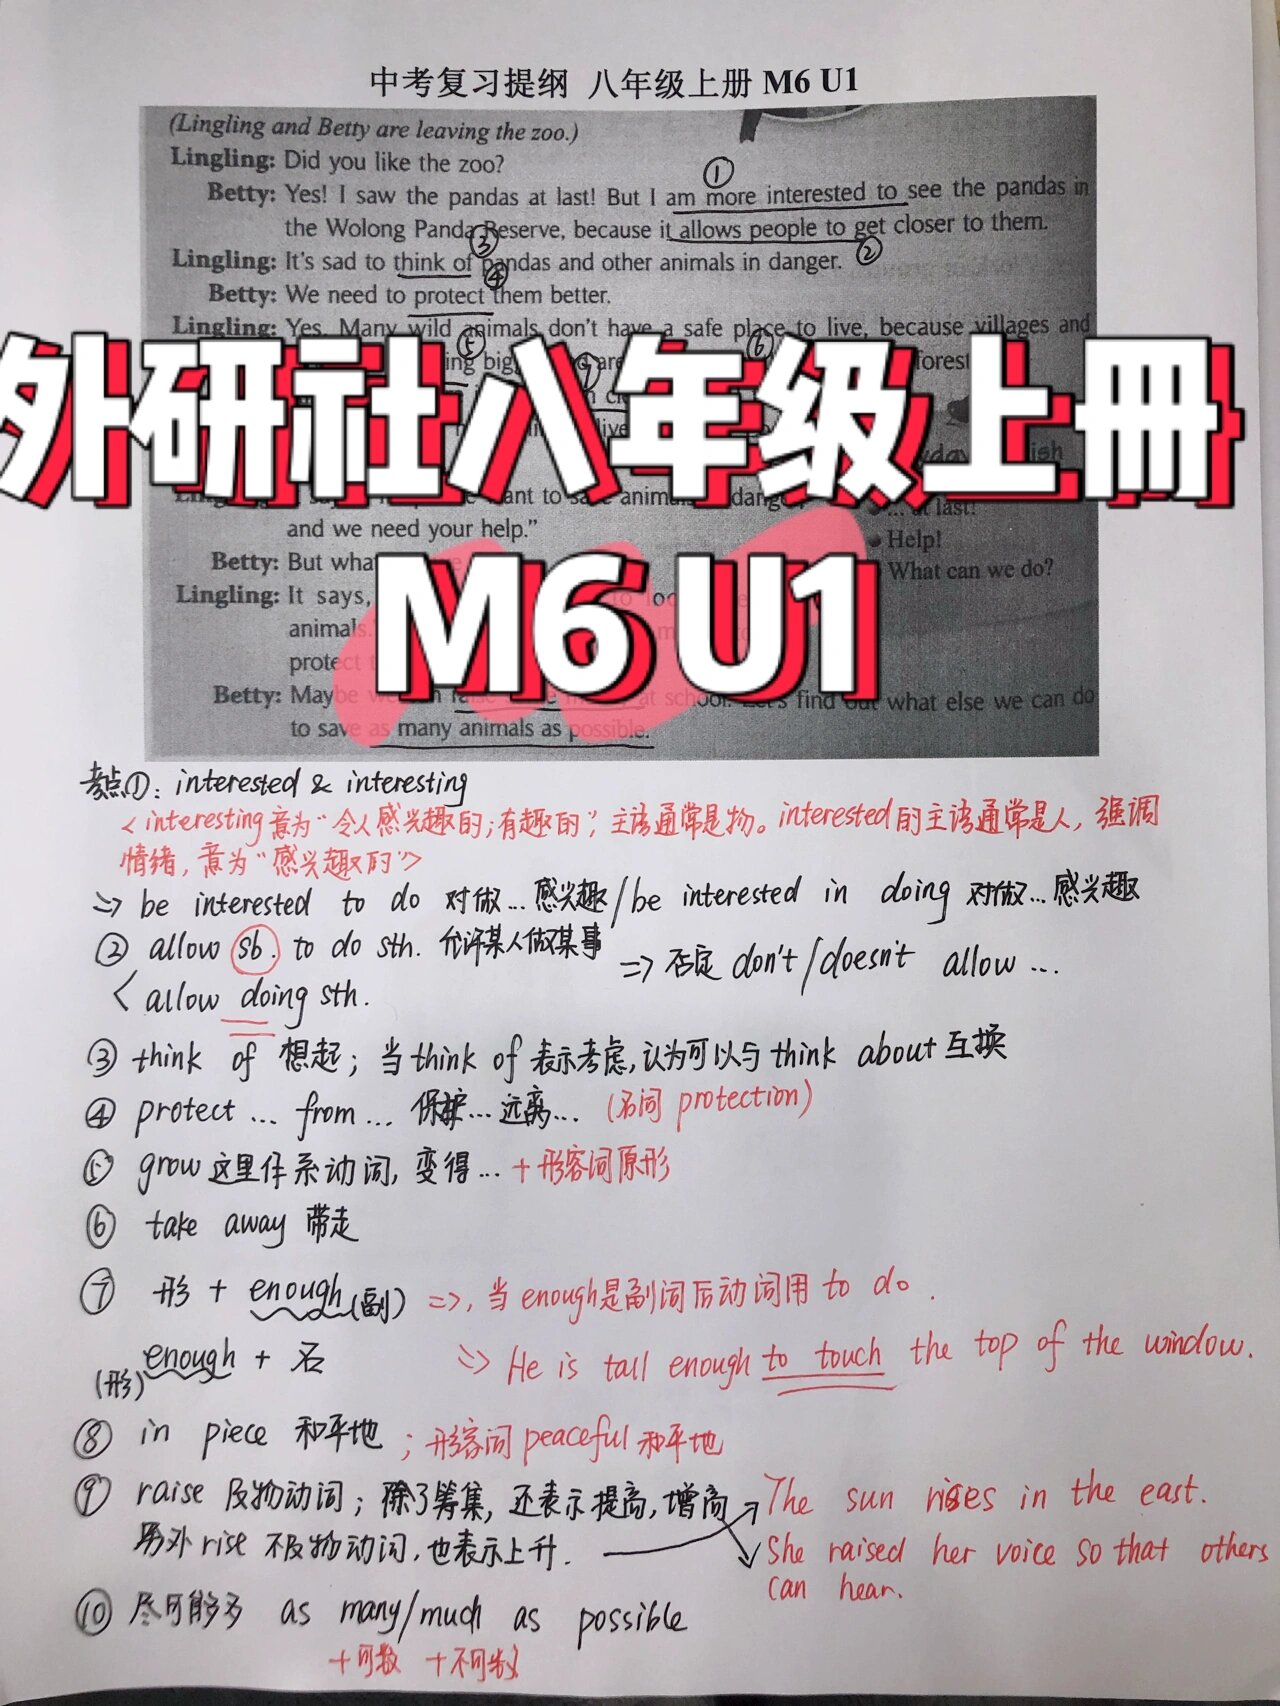 中考复习提纲 八年级上册 M6 U1
(Lingling and Betty are leaving the zoo.)
Lingling: Did you like the zoo?
①
Betty: Yes! I saw the pandas at last! But I am more interested to see the pandas in
the Wolong Panda Reserve, because it allows people to get closer to them.
③ ②
Lingling: It's sad to think of pandas and other animals in danger.
④
Betty: We need to protect them better.
Lingling: Yes. Many wild animals don't have a safe place to live, because villages and
⑤ ⑥
⑦
外研社八年级上册
want to save animals
and we need your help."
at last!
Help!
What can we do?
Betty: But what
Lingling: It says,
animals.
M6 U1
protect
Betty: Maybe we can raise some money at school. Let's find out what else we can do
to save as many animals as possible.
考点①: interested & interesting
<interesting意为“令人感兴趣的;有趣的”, 主语通常是物。interested的主语通常是人, 强调
情绪, 意为“感兴趣的”>
=> be interested to do 对做...感兴趣/be interested in doing 对做...感兴趣
② allow sb. to do sth. 允许某人做某事
=> 否定 don't/doesn't allow ...
< allow doing sth.
③ think of 想起; 当think of 表示考虑,认为可以与think about互换
④ protect ... from... 保护...远离... (名词 protection)
⑤ grow这里作系动词, 变得... +形容词原形
⑥ take away 带走
⑦ 形 + enough(副) =>, 当enough是副词后动词用 to do.
enough + 名
(形)
=> He is tall enough to touch the top of the window.
⑧ in piece 和平地 ; 形容词 peaceful 和平地
⑨ raise 及物动词; 除了筹集, 还表示提高, 增高
The sun rises in the east.
另外rise 不及物动词, 也表示上升.
She raised her voice so that others
can hear.
⑩ 尽可能多 as many/much as possible
+可数 +不可数